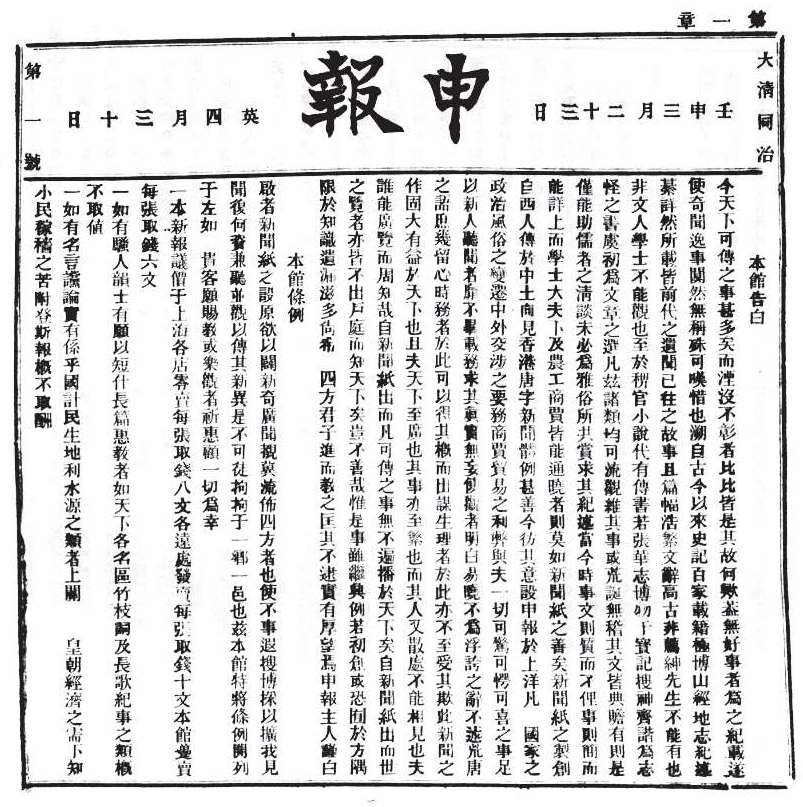 第一章
大清同治
壬申三月二十三日
申報
英四月三十日
第一號
本館告白
今天下可傳之事甚多矣而湮沒不彰者比比皆是其故何歟蓋無好事者爲之紀載遂
使奇聞逸事闃然無稱殊可嘆惜也溯自古今以來史記百家載籍極博山經地志紀述
綦詳然所載皆前代之遺聞已往之故事且篇幅浩繁文辭高古非薦紳先生不能有也
非文人學士不能觀也至於稗官小說代有傳書若張華志博物干寶記搜神齊諧爲志
怪之書虞初爲文章之選凡茲諸類均可流觀維其事或荒誕無稽其文皆典贍有則是
僅能助儒者之清談未必爲雅俗所共賞求其紀述當今時事文則質而不俚事則簡而
能詳上而學士大夫下及農工商賈皆能通曉者則莫如新聞紙之善矣新聞紙之製創
自西人傳於中土向見香港唐字新聞體例甚善今仿其意設申報於上洋凡　國家之
政治風俗之變遷中外交涉之要務商賈貿易之利弊與夫一切可驚可愕可喜之事足
以新人聽聞者靡不畢載務求其眞實無妄使觀者明白易曉不爲浮誇之辭不述荒唐
之語庶幾留心時務者於此可以得其槪而出謀生理者於此亦不至受其欺此新聞之
作固大有益於天下也且夫天下至廣也其事亦至繁也而其人又散處不能相見也夫
誰能廣覽而周知哉自新聞紙出而凡可傳之事無不遍播於天下矣自新聞紙出而世
之覽者亦皆不出戶庭而知天下矣豈不善哉惟是事雖繼興例若初創或恐囿於方隅
限於知識遺漏滋多尚希　四方君子進而敎之匡其不逮實有厚望焉申報主人謹白
本館條例
啟者新聞紙之設原欲以闢新奇廣聞覩冀流佈四方者也使不事遐搜博採以擴我見
聞復何資兼聽並觀以傳其新異是不可徒拘拘于一鄉一邑也茲本館特將條例開列
于左如　貴客願賜敎或樂觀者祈惠顧一切爲幸
一本新報議價于上海各店零賣每張取錢八文各遠處發賣每張取錢十文本館躉賣
每張取錢六文
一如有騷人韻士有願以短什長篇惠敎者如天下各名區竹枝詞及長歌紀事之類槪
不取値
一如有名言讜論實有係乎國計民生地利水源之類者上關　皇朝經濟之需下知
小民稼穡之苦附登斯報槪不取酬